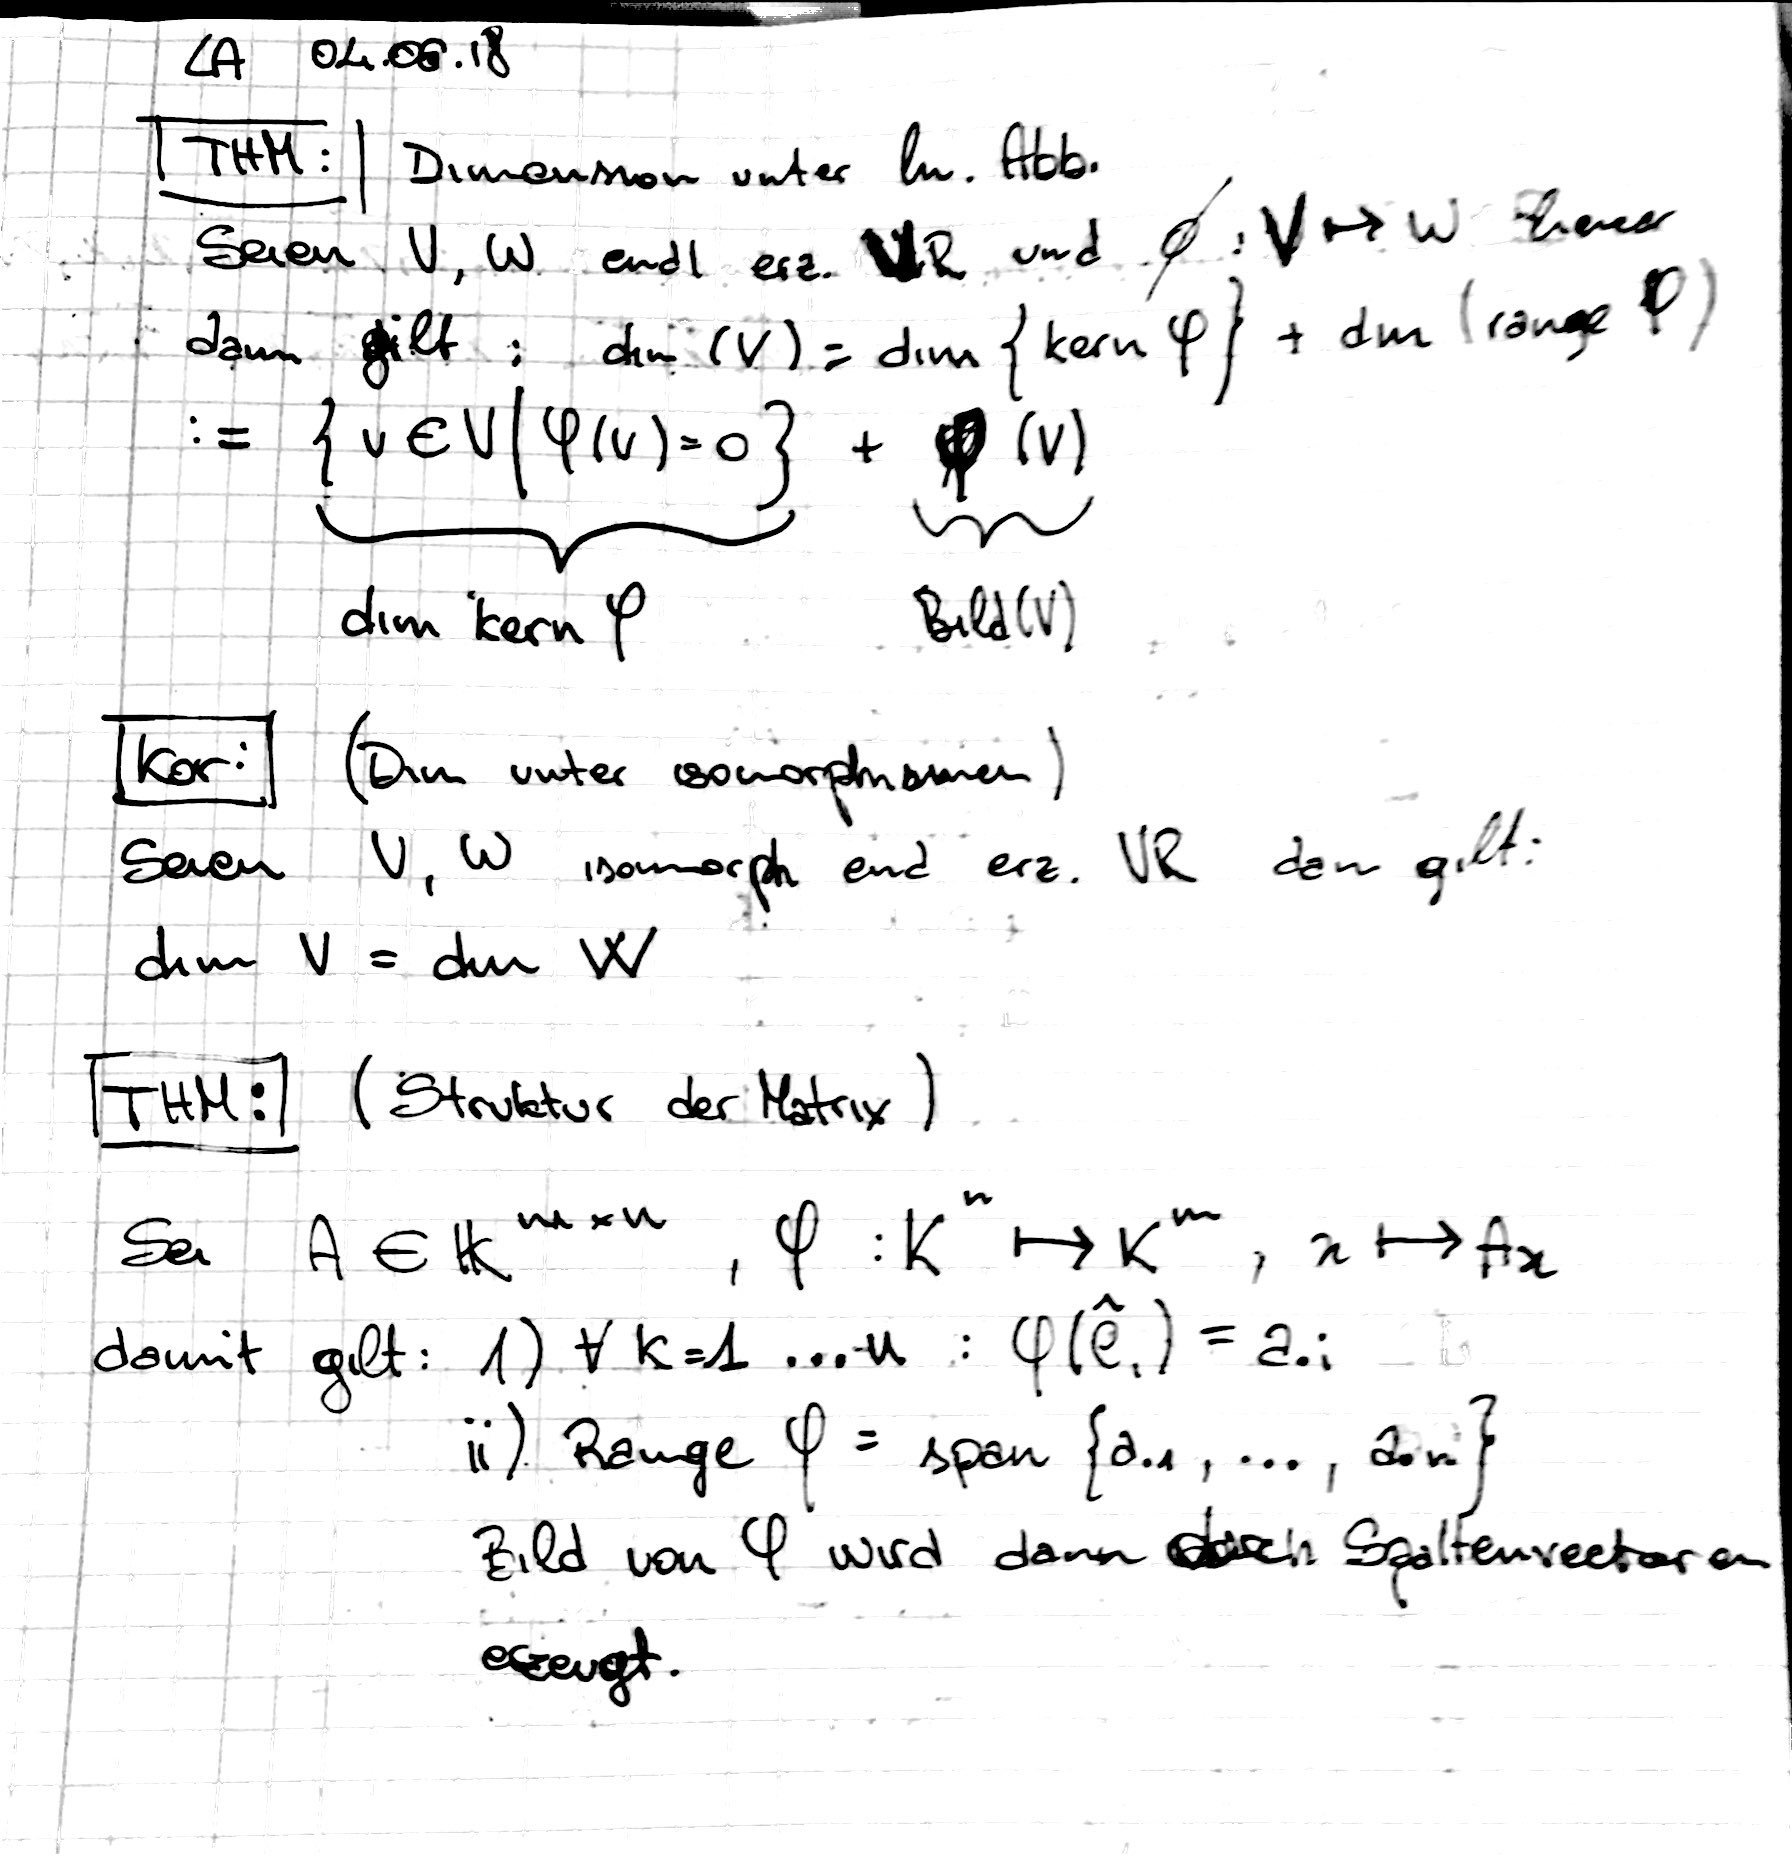 LA 04.06.18
THM: Dimension unter lin. Abb.
Seien V, W endl erz. VR und φ : V ↦ W linear
dann gilt : dim (V) = dim {kern φ} + dim (range φ)
:= {v ∈ V | φ(v) = 0} + φ (V)
dim kern φ Bild(V)
Kor: (Dim unter isomorphismen)
Seien V, W isomorph end erz. VR dan gilt:
dim V = dim W
THM: (Struktur der Matrix)
Sei A ∈ 𝕂^{m×n} , φ : K^n ↦ K^m , x ↦ Ax
damit gilt: 1) ∀ k=1 ...n : φ(ê_i) = a.i
ii) Range φ = span {a.1 , ... , a.n}
Bild von φ wird dann durch Spaltenvectoren
erzeugt.